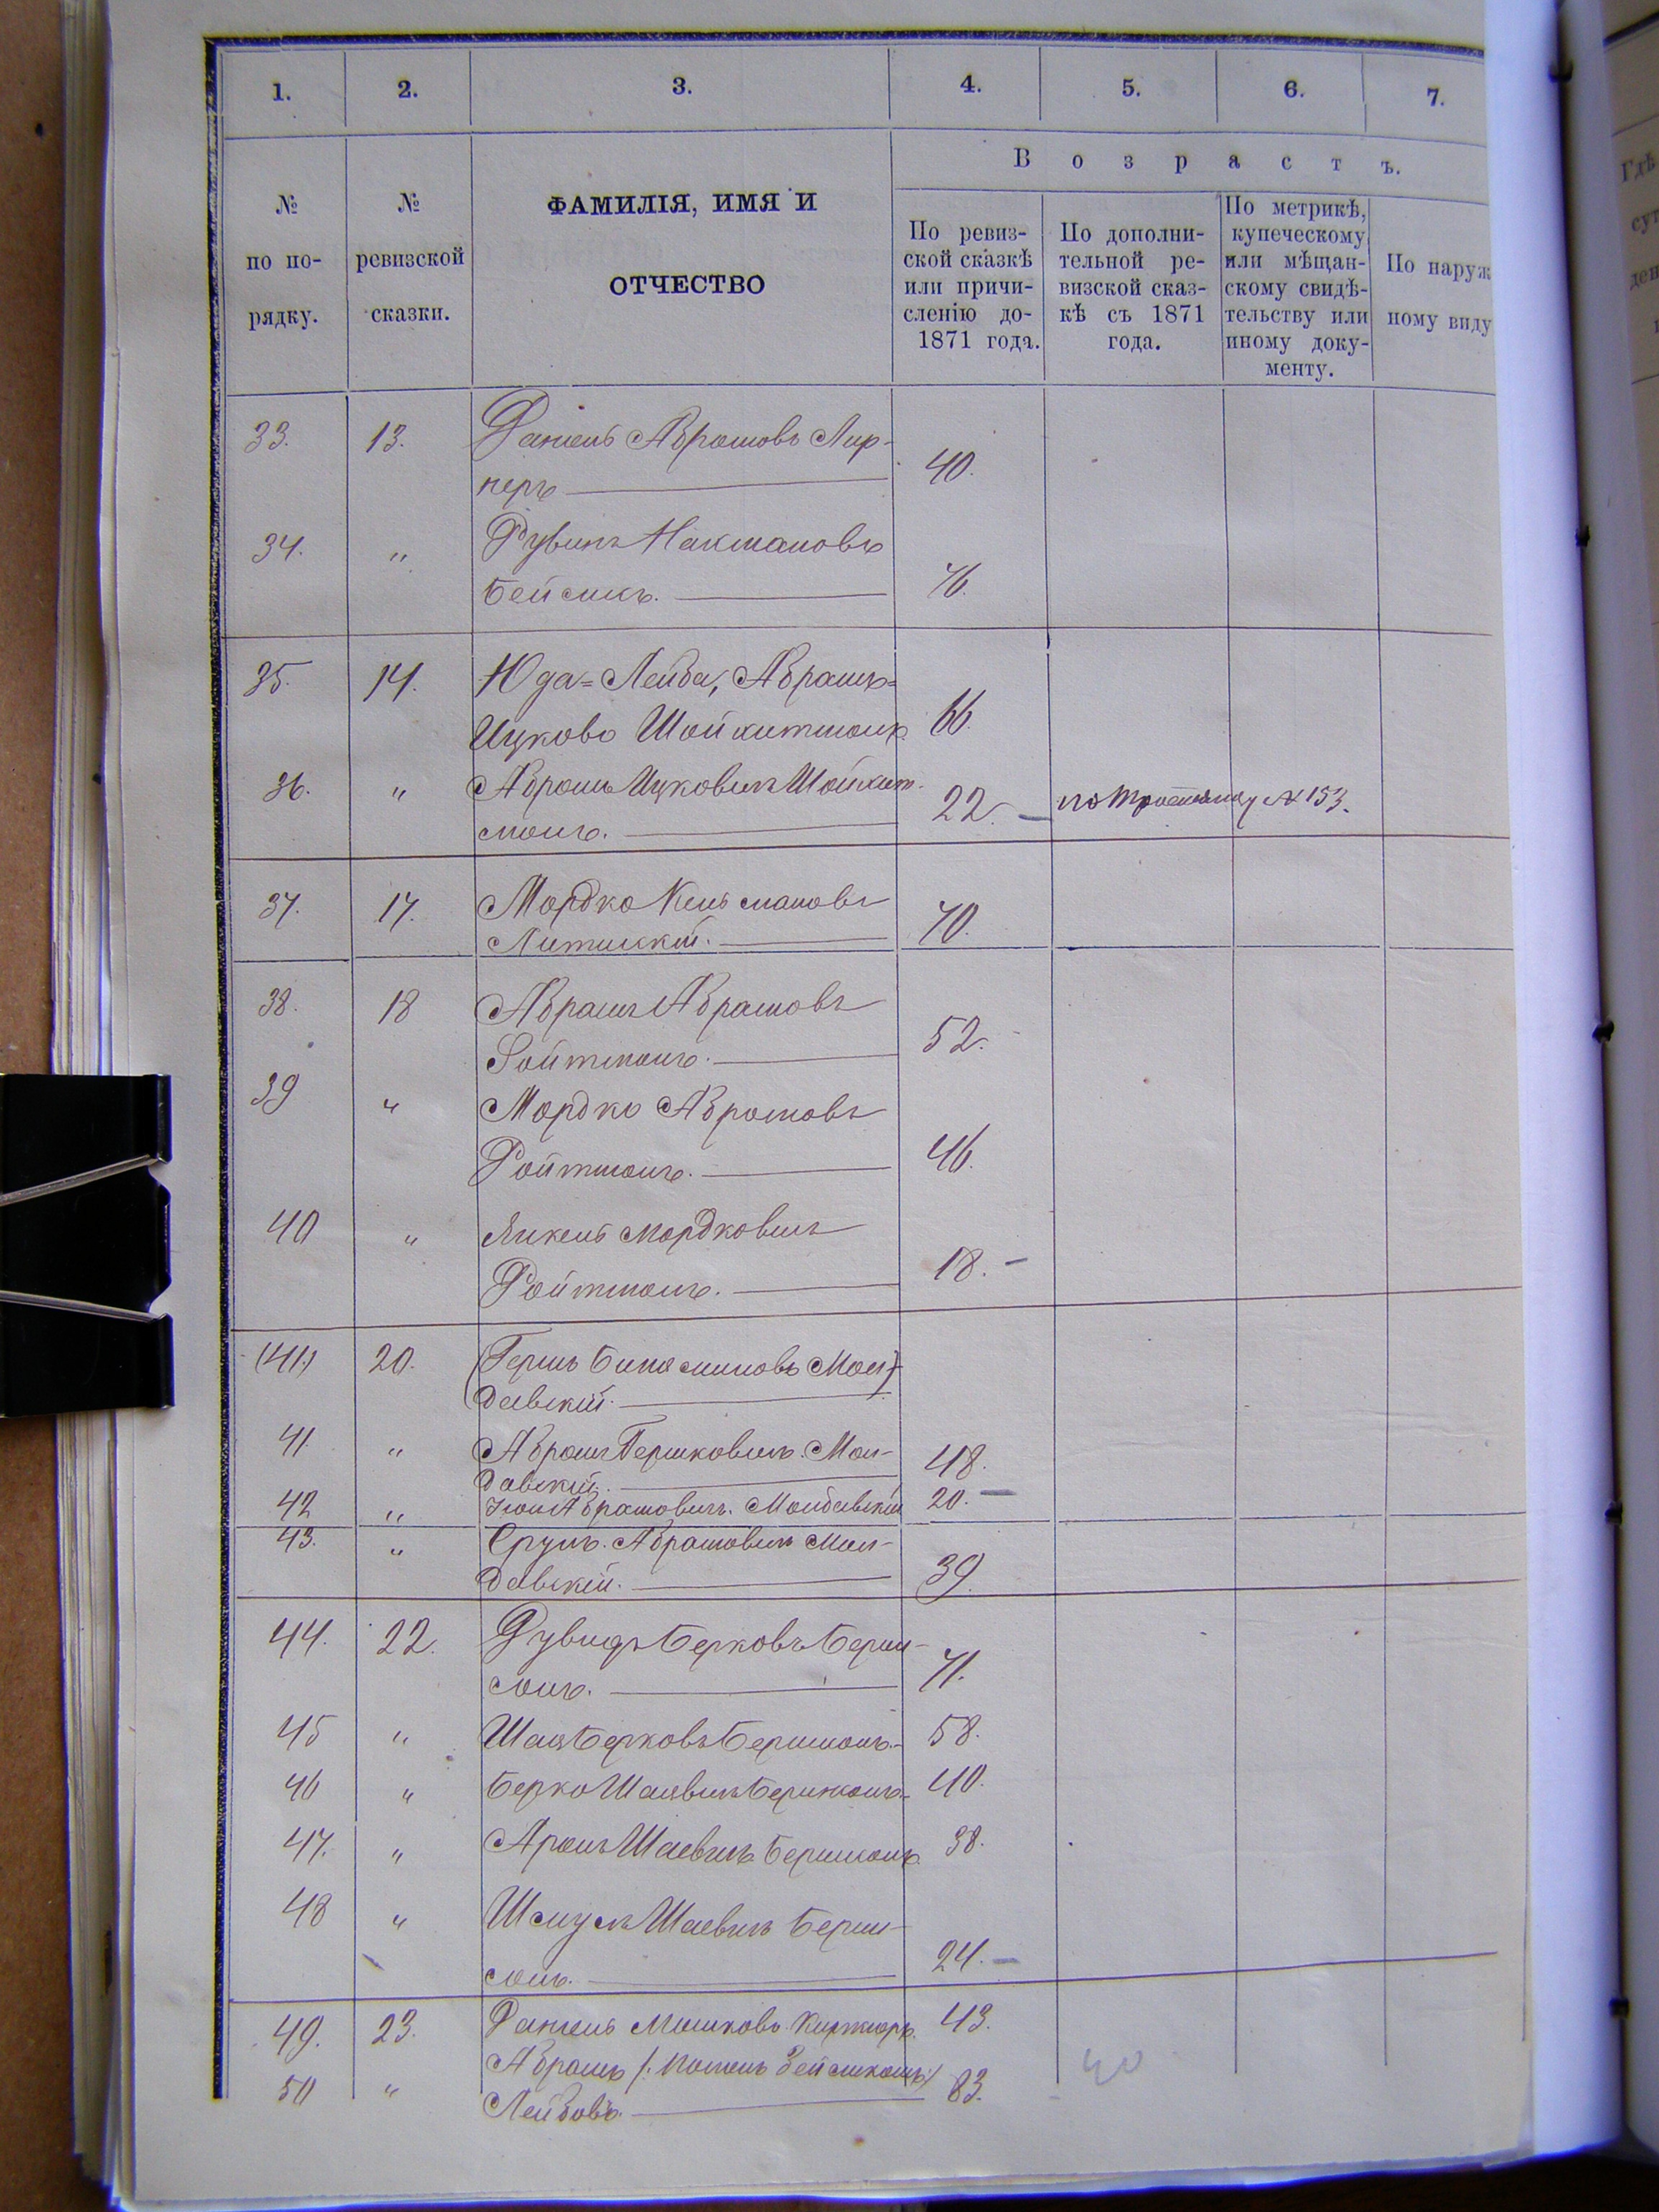 1. 2. 3. 4. 5. 6. 7.
№ по по-рядку.
№ ревизской сказки.
ФАМИЛІЯ, ИМЯ И
ОТЧЕСТВО
Возрастъ.
По ревиз-
ской сказкѣ
или причи-
сленію до-
1871 года.
По дополни-
тельной ре-
визской сказ-
кѣ съ 1871
года.
По метрикѣ,
купеческому
или мѣщан-
скому свидѣ-
тельству или
иному доку-
менту.
По наруж
ному виду
33. 13. Даніель Абрамовъ Лир-
неръ 40.
34. " Рувинъ Накмановъ
Бейсикъ. 76.
35. 14. Юда=Лейба, Абрамъ=
Ицковъ Шойхитманъ 66.
36. " Абрамъ Ицковичъ Шойхит-
манъ. 22. № 153.
37. 17. Мордко Кельмановъ
70.
38. 18 Абрамъ Абрамовъ
Ройтманъ. 52.
39 " Мордко Абрамовъ
Ройтманъ. 46.
40 " Янкель Мордковичъ
Ройтманъ. 18.
(41.) 20. (Гершъ Биняминовъ Мол-)
давскій.
41. " Абрамъ Гершковичъ Мол-
давскій. 48.
42 " Абрамовичъ Молдавскій 20.
43. " Сруль Абрамовичъ Мол-
давскій. 39.
44. 22. Берковъ Берш-
71.
45 " Шая Берковъ 58.
46 " Берко Шаевичъ 40.
47. " Аронъ Шаевичъ 38.
48 " Шмуль Шаевичъ Берш-
24.
49. 23. Даніель Мошковъ 43.
50 " Абрамъ
Лейбовъ. 83.
40
Гдѣ